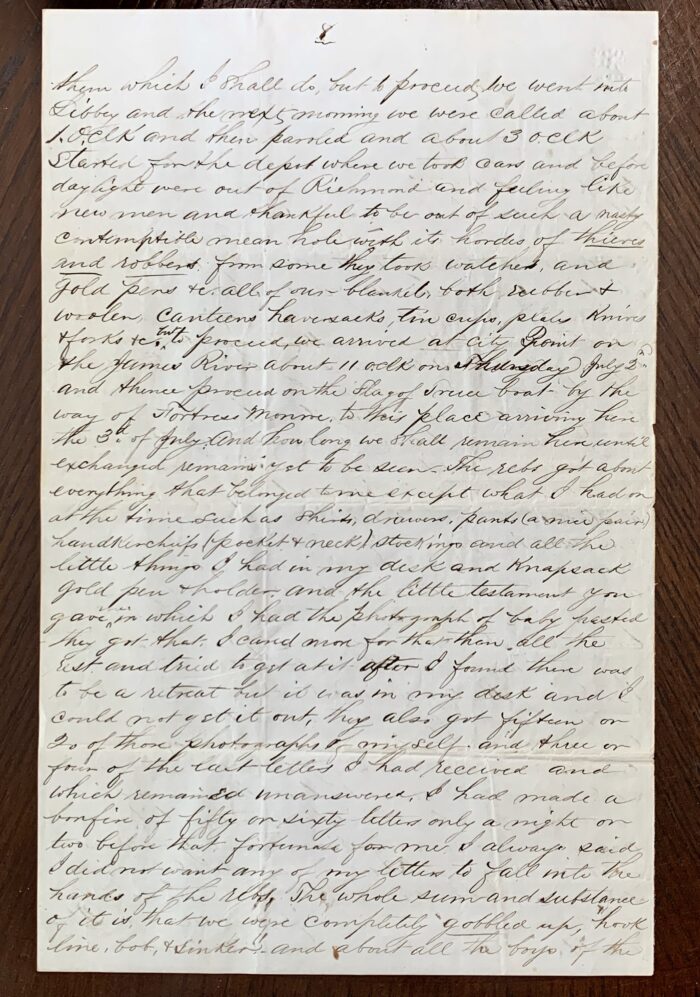 8
them which I shall do, but to proceed, we went into
Libbey and the next morning we were called about
1. O.Clk and then paroled and about 3 oclk
Started for the depot where we took cars and before
daylight were out of Richmond and feeling like
new men and thankful to be out of such a nasty
contemptible mean hole with its hordes of thieves
and robbers. from some they took watches, and
gold pens &c. all of our blankets, both rubber &
woolen, canteens haversacks, tin cups, plates Knives
& forks &c. but to proceed, we arrived at City Point on
the James River about 11 oclk on Thursday July 2nd
and thence proceed on the Flag of Truce boat by the
way of Fortress Monroe, to this place arriving here
the 3d. of July. And how long we shall remain here until
exchanged remains yet to be seen. The rebs got about
everything that belonged to me except what I had on
at the time such as Shirts, drawers, pants (a nice pair)
handkerchiefs (pocket & neck) stockings and all the
little things I had in my desk and Knapsack
Gold pen & holder and the little testament you
gave in which I had the photograph of baby pasted
they got that. I cared more for that than all the
rest and tried to get at it after I found there was
to be a retreat but it was in my desk and I
could not get it out, they also got fifteen or
20 of those photographs of myself. and three or
four of the last letters I had received and
which remained unanswered, I had made a
bonfire of fifty or sixty letters only a night or
two before that fortunate for me I always said
I did not want any of my letters to fall into the
hands of the rebs, The whole sum and substance
of it is that we were completely gobbled up, "hook
line, bob, & sinker" and about all the boys of the